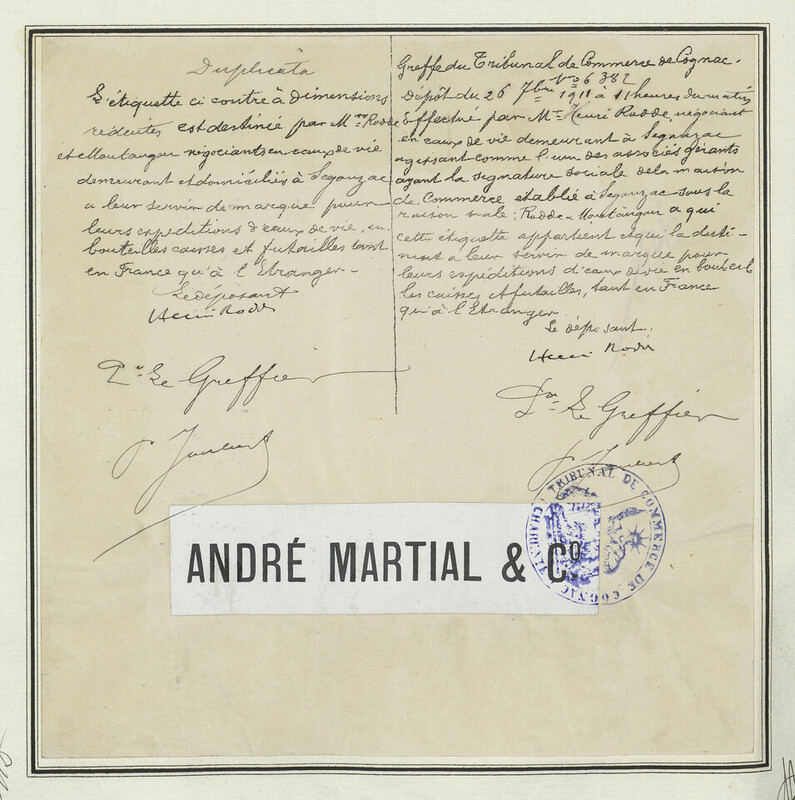 Duplicata
L'étiquette ci contre à dimensions
réduites est destinée par Mrs Rodde
et Montangon négociants en eaux de vie
demeurant et domiciliés à Segonzac
a leur servir de marque pour
leurs expéditions d'eaux de vie, en
bouteilles caisses et futailles tant
en France qu'à l'Etranger.
Le déposant
Henri Rodde
Pr Le Greffier
Greffe du Tribunal de Commerce de Cognac.
No 6382
Dépôt du 26 7bre 1911 à 11 heures du matin
Effectué par Mr Henri Rodde négociant
en eaux de vie demeurant à Segonzac
agissant comme l'un des associés gérants
ayant la signature sociale de la maison
de Commerce etablié à Segonzac sous la
raison sociale: Rodde & Montangon a qui
cette étiquette appartient et qui la desti-
nent a leur servir de marque pour
leurs expéditions d'eaux de vie en bouteil
les caisses et futailles, tant en France
qu'à l'Etranger
Le déposant.
Henri Rodde
Pr Le Greffier
ANDRÉ MARTIAL & Co
TRIBUNAL DE COMMERCE DE COGNAC
CHARENTE